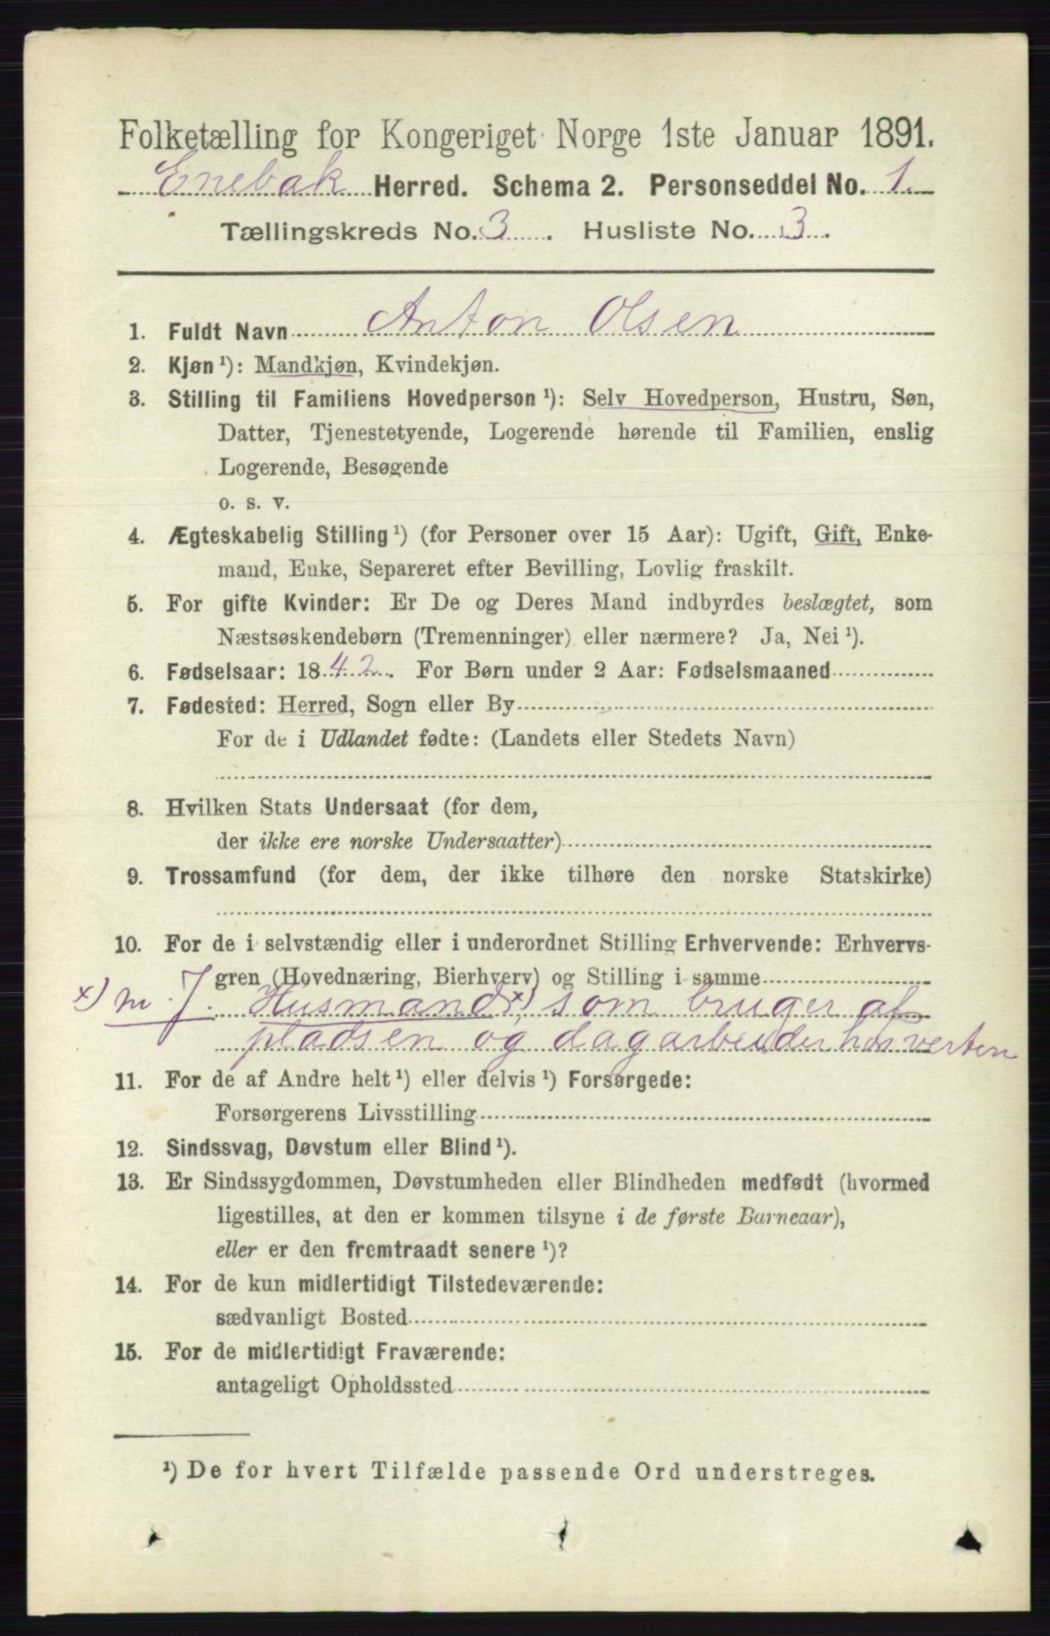 Folketælling for Kongeriget Norge 1ste Januar 1891.
Enebak Herred. Schema 2. Personseddel No. 1.
Tællingskreds No. 3. Husliste No. 3.
1. Fuldt Navn Anton Olsen
2. Kjøn ¹): Mandkjøn, Kvindekjøn.
3. Stilling til Familiens Hovedperson ¹): Selv Hovedperson, Hustru, Søn,
Datter, Tjenestetyende, Logerende hørende til Familien, enslig
Logerende, Besøgende
o. s. v.
4. Ægteskabelig Stilling ¹) (for Personer over 15 Aar): Ugift, Gift, Enke-
mand, Enke, Separeret efter Bevilling, Lovlig fraskilt.
5. For gifte Kvinder: Er De og Deres Mand indbyrdes beslægtet, som
Næstsøskendebørn (Tremenninger) eller nærmere? Ja, Nei ¹).
6. Fødselsaar: 1842. For Børn under 2 Aar: Fødselsmaaned
7. Fødested: Herred, Sogn eller By
For de i Udlandet fødte: (Landets eller Stedets Navn)
8. Hvilken Stats Undersaat (for dem,
der ikke ere norske Undersaatter)
9. Trossamfund (for dem, der ikke tilhøre den norske Statskirke)
10. For de i selvstændig eller i underordnet Stilling Erhvervende: Erhvervs-
gren (Hovednæring, Bierhverv) og Stilling i samme
x) m. J. Husmand x), som bruger af
pladsen og dagarbeider hos verten
11. For de af Andre helt ¹) eller delvis ¹) Forsørgede:
Forsørgerens Livsstilling
12. Sindssvag, Døvstum eller Blind ¹).
13. Er Sindssygdommen, Døvstumheden eller Blindheden medfødt (hvormed
ligestilles, at den er kommen tilsyne i de første Barneaar),
eller er den fremtraadt senere ¹)?
14. For de kun midlertidigt Tilstedeværende:
sædvanligt Bosted
15. For de midlertidigt Fraværende:
antageligt Opholdssted
¹) De for hvert Tilfælde passende Ord understreges.